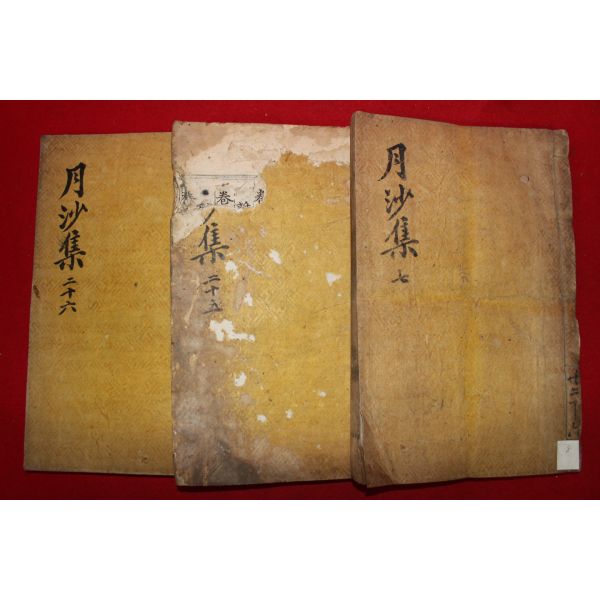 月沙集
二十六
集
二十五
卷
月沙集
七